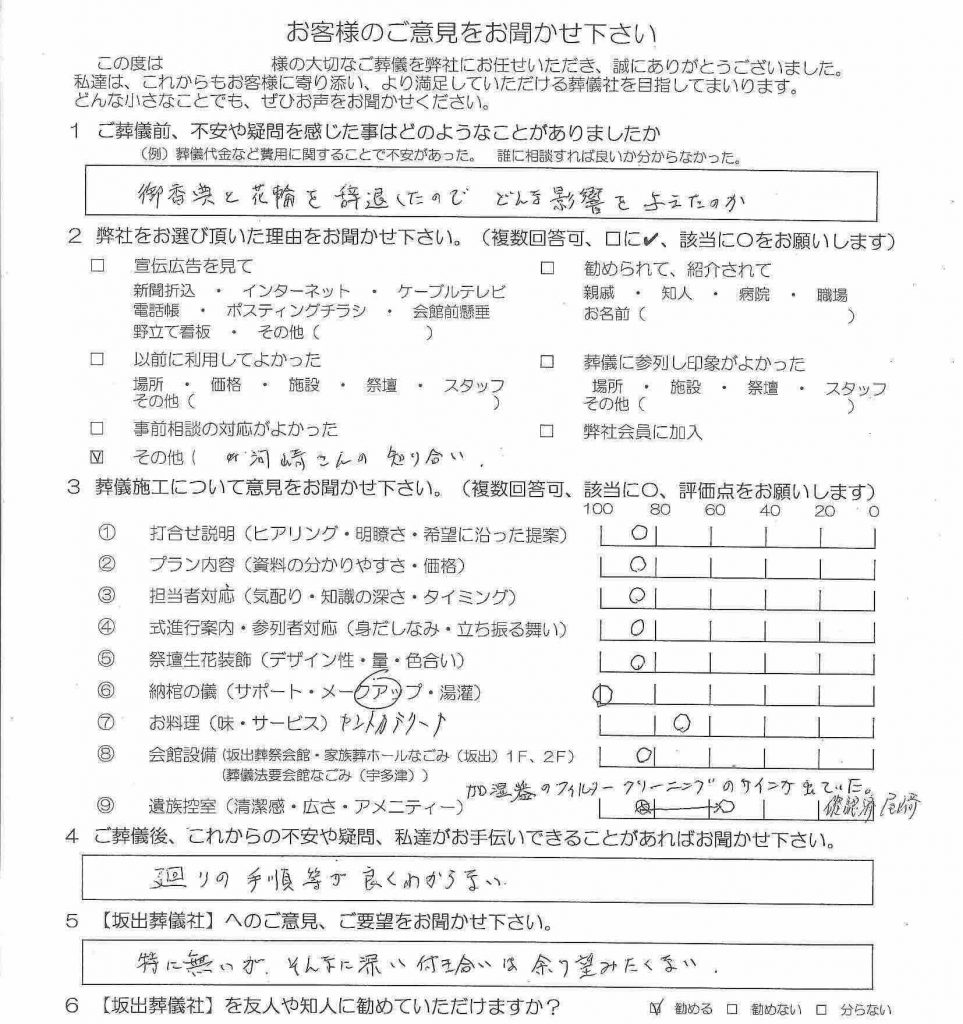 お客様のご意見をお聞かせ下さい
この度は 様の大切なご葬儀を弊社にお任せいただき、誠にありがとうございました。
私達は、これからもお客様に寄り添い、より満足していただける葬儀社を目指してまいります。
どんな小さなことでも、ぜひお声をお聞かせください。
1 ご葬儀前、不安や疑問を感じた事はどのようなことがありましたか
（例）葬儀代金など費用に関することで不安があった。 誰に相談すれば良いか分からなかった。
御香典と花輪を辞退したので どんな影響を与えたのか
2 弊社をお選び頂いた理由をお聞かせ下さい。（複数回答可、□に✔、該当に○をお願いします）
□ 宣伝広告を見て □ 勧められて、紹介されて
新聞折込 ・ インターネット ・ ケーブルテレビ 親戚 ・ 知人 ・ 病院 ・ 職場
電話帳 ・ ポスティングチラシ ・ 会館前懸垂 お名前（ ）
野立て看板 ・ その他（ ）
□ 以前に利用してよかった □ 葬儀に参列し印象がよかった
場所 ・ 価格 ・ 施設 ・ 祭壇 ・ スタッフ 場所 ・ 施設 ・ 祭壇 ・ スタッフ
その他（ ） その他（ ）
□ 事前相談の対応がよかった □ 弊社会員に加入
☑ その他（ 河崎さんの知り合い.
3 葬儀施工について意見をお聞かせ下さい。（複数回答可、該当に○、評価点をお願いします）
100 80 60 40 20 0
① 打合せ説明（ヒアリング・明瞭さ・希望に沿った提案）
② プラン内容（資料の分かりやすさ・価格）
③ 担当者対応（気配り・知識の深さ・タイミング）
④ 式進行案内・参列者対応（身だしなみ・立ち振る舞い）
⑤ 祭壇生花装飾（デザイン性・量・色合い）
⑥ 納棺の儀（サポート・メークアップ・湯灌）
⑦ お料理（味・サービス）
⑧ 会館設備（坂出葬祭会館・家族葬ホールなごみ（坂出）1F、2F）
（葬儀法要会館なごみ（宇多津））
加湿器のフィルタークリーニングのサインが出ていた。
⑨ 遺族控室（清潔感・広さ・アメニティー） 確認済 尾崎
4 ご葬儀後、これからの不安や疑問、私達がお手伝いできることがあればお聞かせ下さい。
廻りの手順等が良くわからない
5 【坂出葬儀社】へのご意見、ご要望をお聞かせ下さい。
特に無いが、そんなに深い付き合いは余り望みたくない.
6 【坂出葬儀社】を友人や知人に勧めていただけますか？ ☑ 勧める □ 勧めない □ 分らない